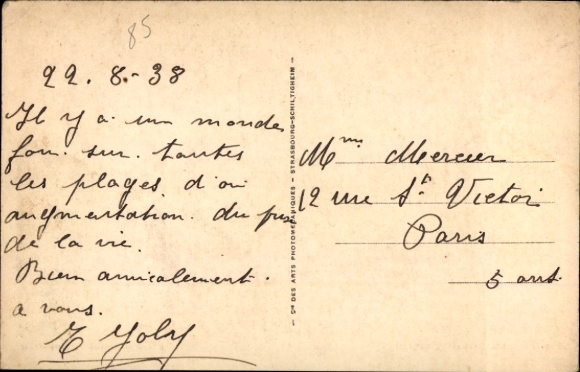 85
22.8.-38
Il y a un monde
fou. sur toutes
les plages. d'où
augmentation. du prix
de la vie.
Bien amicalement.
a vous.
E Joly
- Sté DES ARTS PHOTOMÉCANIQUES - STRASBOURG-SCHILTIGHEIM -
Mme Mercier
12 rue St Victor
Paris
5 arrt.